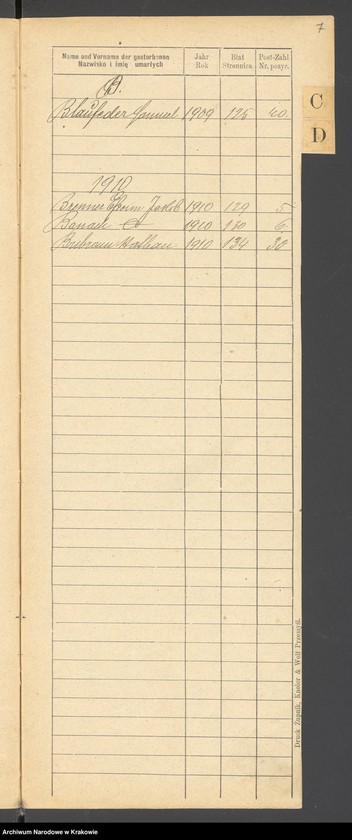 7
Name und Vorname der gestorbenen
Nazwisko i imię umarłych
Jahr
Rok
Blat
Stronnica
Post-Zahl
Nr. pozyc.
B.
Blaufeder Samuel 1909 125 40.
1910
Brenner Efroim Jakób 1910 129 5.
Banach 1910 130 6.
Nathan 1910 134 30
C
D
Druck Zupnik, Knoller & Wolf Przemyśl.
Archiwum Narodowe w Krakowie